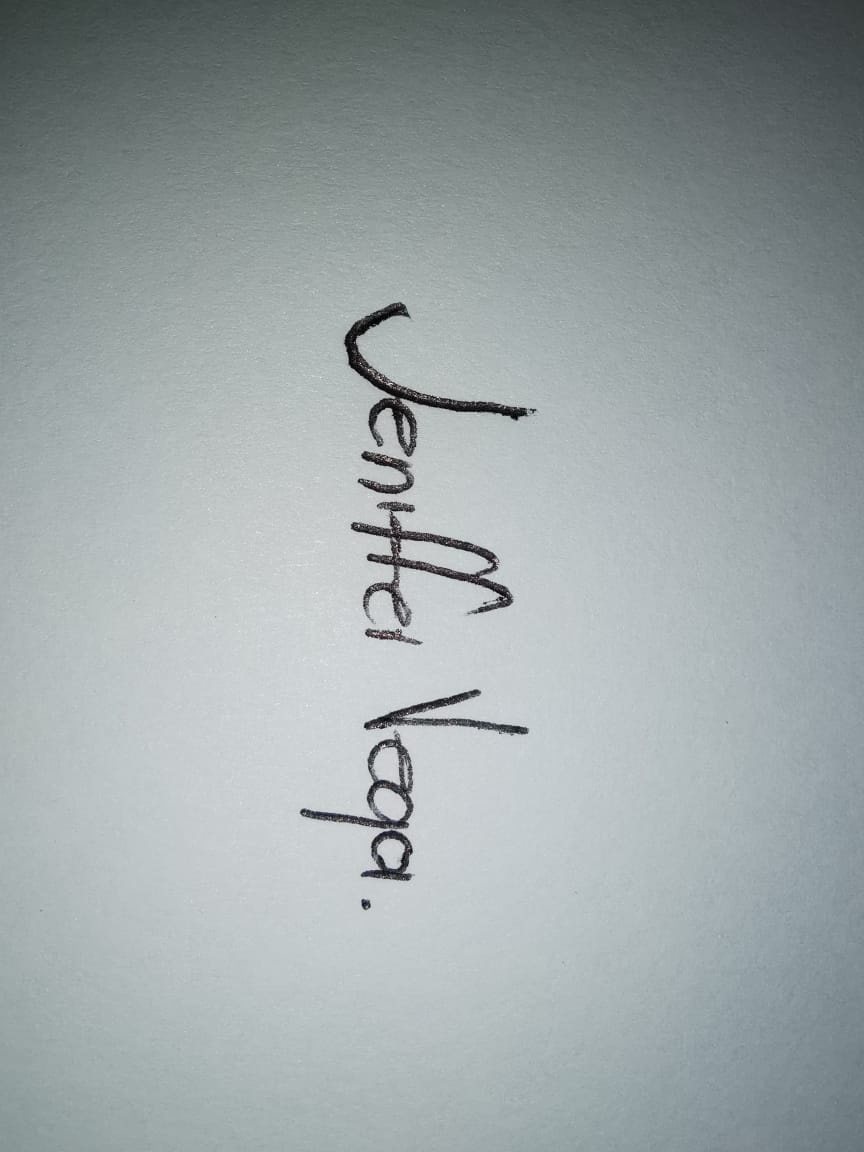 Jeniffer Vega.